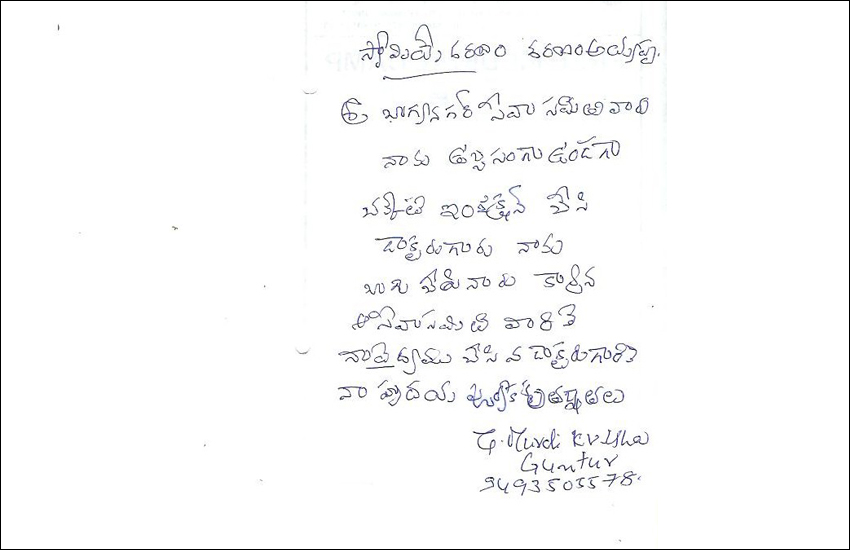 స్వామియే శరణం శరణంఅయ్యప్ప.
ఈ భాగ్యనగర్ సేవా సమితి వారి
నాకు ఉబ్బసంగా ఉండగా
ఇంజక్షన్ చేసి
డాక్టరుగారు నాకు
బాగు చేశినారు కావున
ఈ సేవాసమితి వారికి
నావైద్యము చేసిన డాక్టరుగారికి
నా హృదయ పూర్వక కృతజ్ఞతలు
Murali Krishna
Guntur
9493503578.